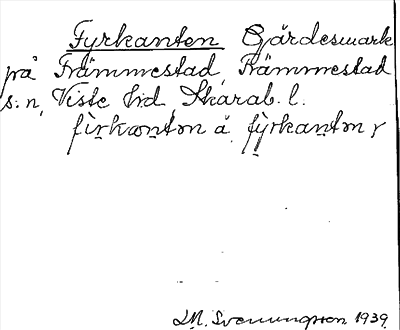 Fyrkanten Gärdesmark
på Främmestad, Främmestad
s:n, Viste hd, Skarab. l.
fi̠rkan̠tm å fy̠rkan̠tm,
I.M. Svenungsson 1939